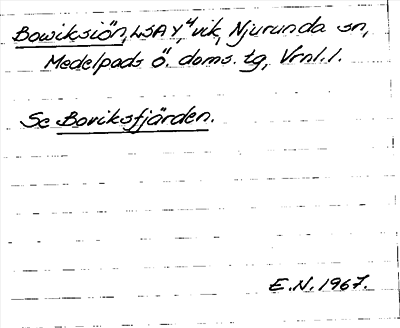 Bowiksiön, LSA Y⁴ vik, Njurunda sn,
Medelpads ö. doms. tg, Vrnl.l.
Se Boviksfjärden.
E.N. 1967.